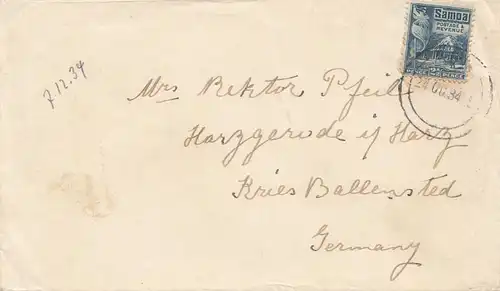 Samoa
POSTAGE &
REVENUE
PENCE
24 OC 34
7.12.34
Mrs Rektor Pfeil
Harzgerode i/ Harz
Kries Ballensted
Germany